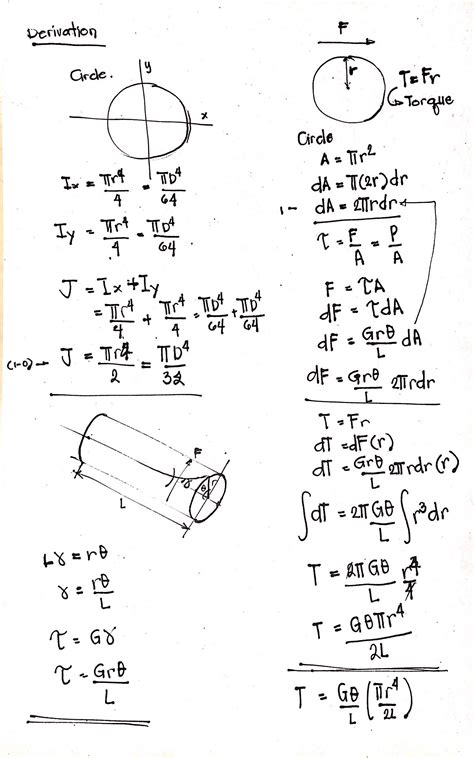 Derivation
Circle.
y
x
Ix = πr⁴/4 = πD⁴/64
Iy = πr⁴/4 = πD⁴/64
J = Ix + Iy
= πr⁴/4 + πr⁴/4 = πD⁴/64 + πD⁴/64
(1-0) → J = πr⁴/2 = πD⁴/32
F
γ
θ
r
L
Lγ = rθ
γ = rθ/L
τ = Gγ
τ = Grθ/L
F
r
T = Fr
Torque
Circle
A = πr²
dA = π(2r)dr
1 - dA = 2πrdr
τ = F/A = P/A
F = τA
dF = τdA
dF = Grθ/L dA
dF = Grθ/L 2πrdr
T = Fr
dT = dF(r)
dT = Grθ/L 2πrdr(r)
∫dT = 2πGθ/L ∫r³dr
T = 2πGθ/L r⁴/4
T = Gθπr⁴/2L
T = Gθ/L (πr⁴/2L)